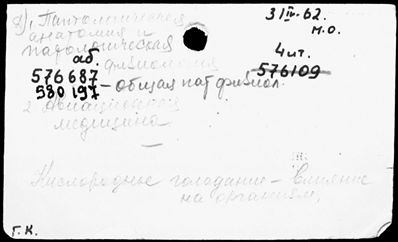 1. Патологическая
анатомия и
патологическая
физиология
аб.
576687
580197 – общая пат физиол.
2 Авиационная
медицина
—
31 IV-62.
М.О.
4 лт.
576109
Кислородное голодание – Влияние
на организм.
Г.К.